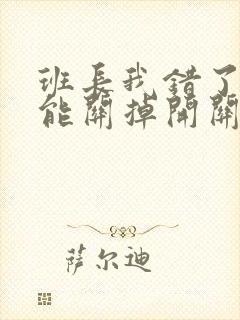 班长我错了
能關掉開關
萨尔迪